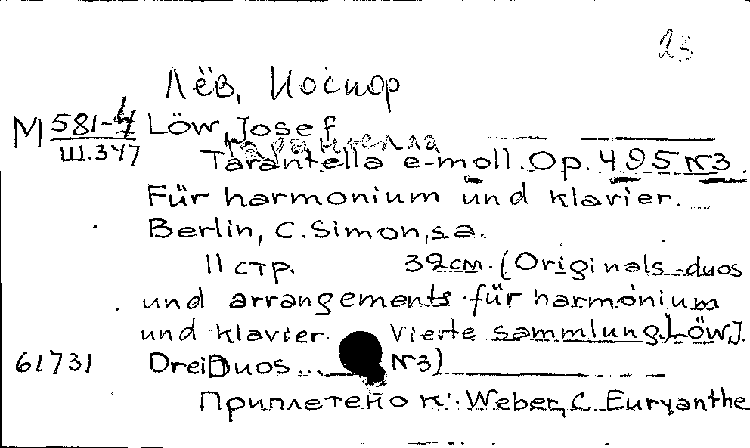 23
Лёв, Иосиф
М 581-4 Löw, Josef
Ш.347 Тарантелла
Tarantella e-moll. Op. 495 N3.
Für harmonium und klavier.
Berlin, C. Simon, s.a.
11 стр. 32см. (Originals-duos
und arrangements für harmonium
und klavier. Vierte sammlung. Löw J.
61731 Drei Duos ... N3)
Приплетено к: Weber, C. Euryanthe